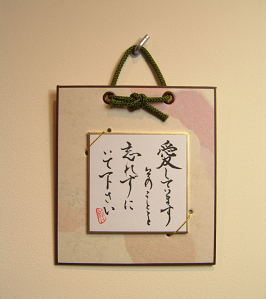 愛しています
そのことを
忘れずに
いて下さい